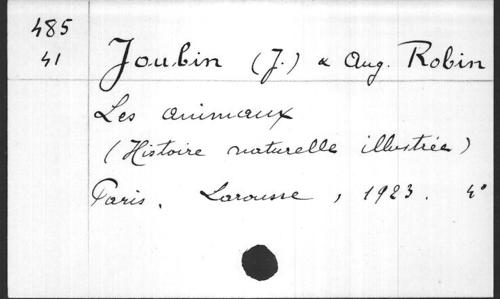 485
41
Joubin (J.) & Aug. Robin
Les animaux
(Histoire naturelle illustrée)
Paris. Larousse, 1923. 4°